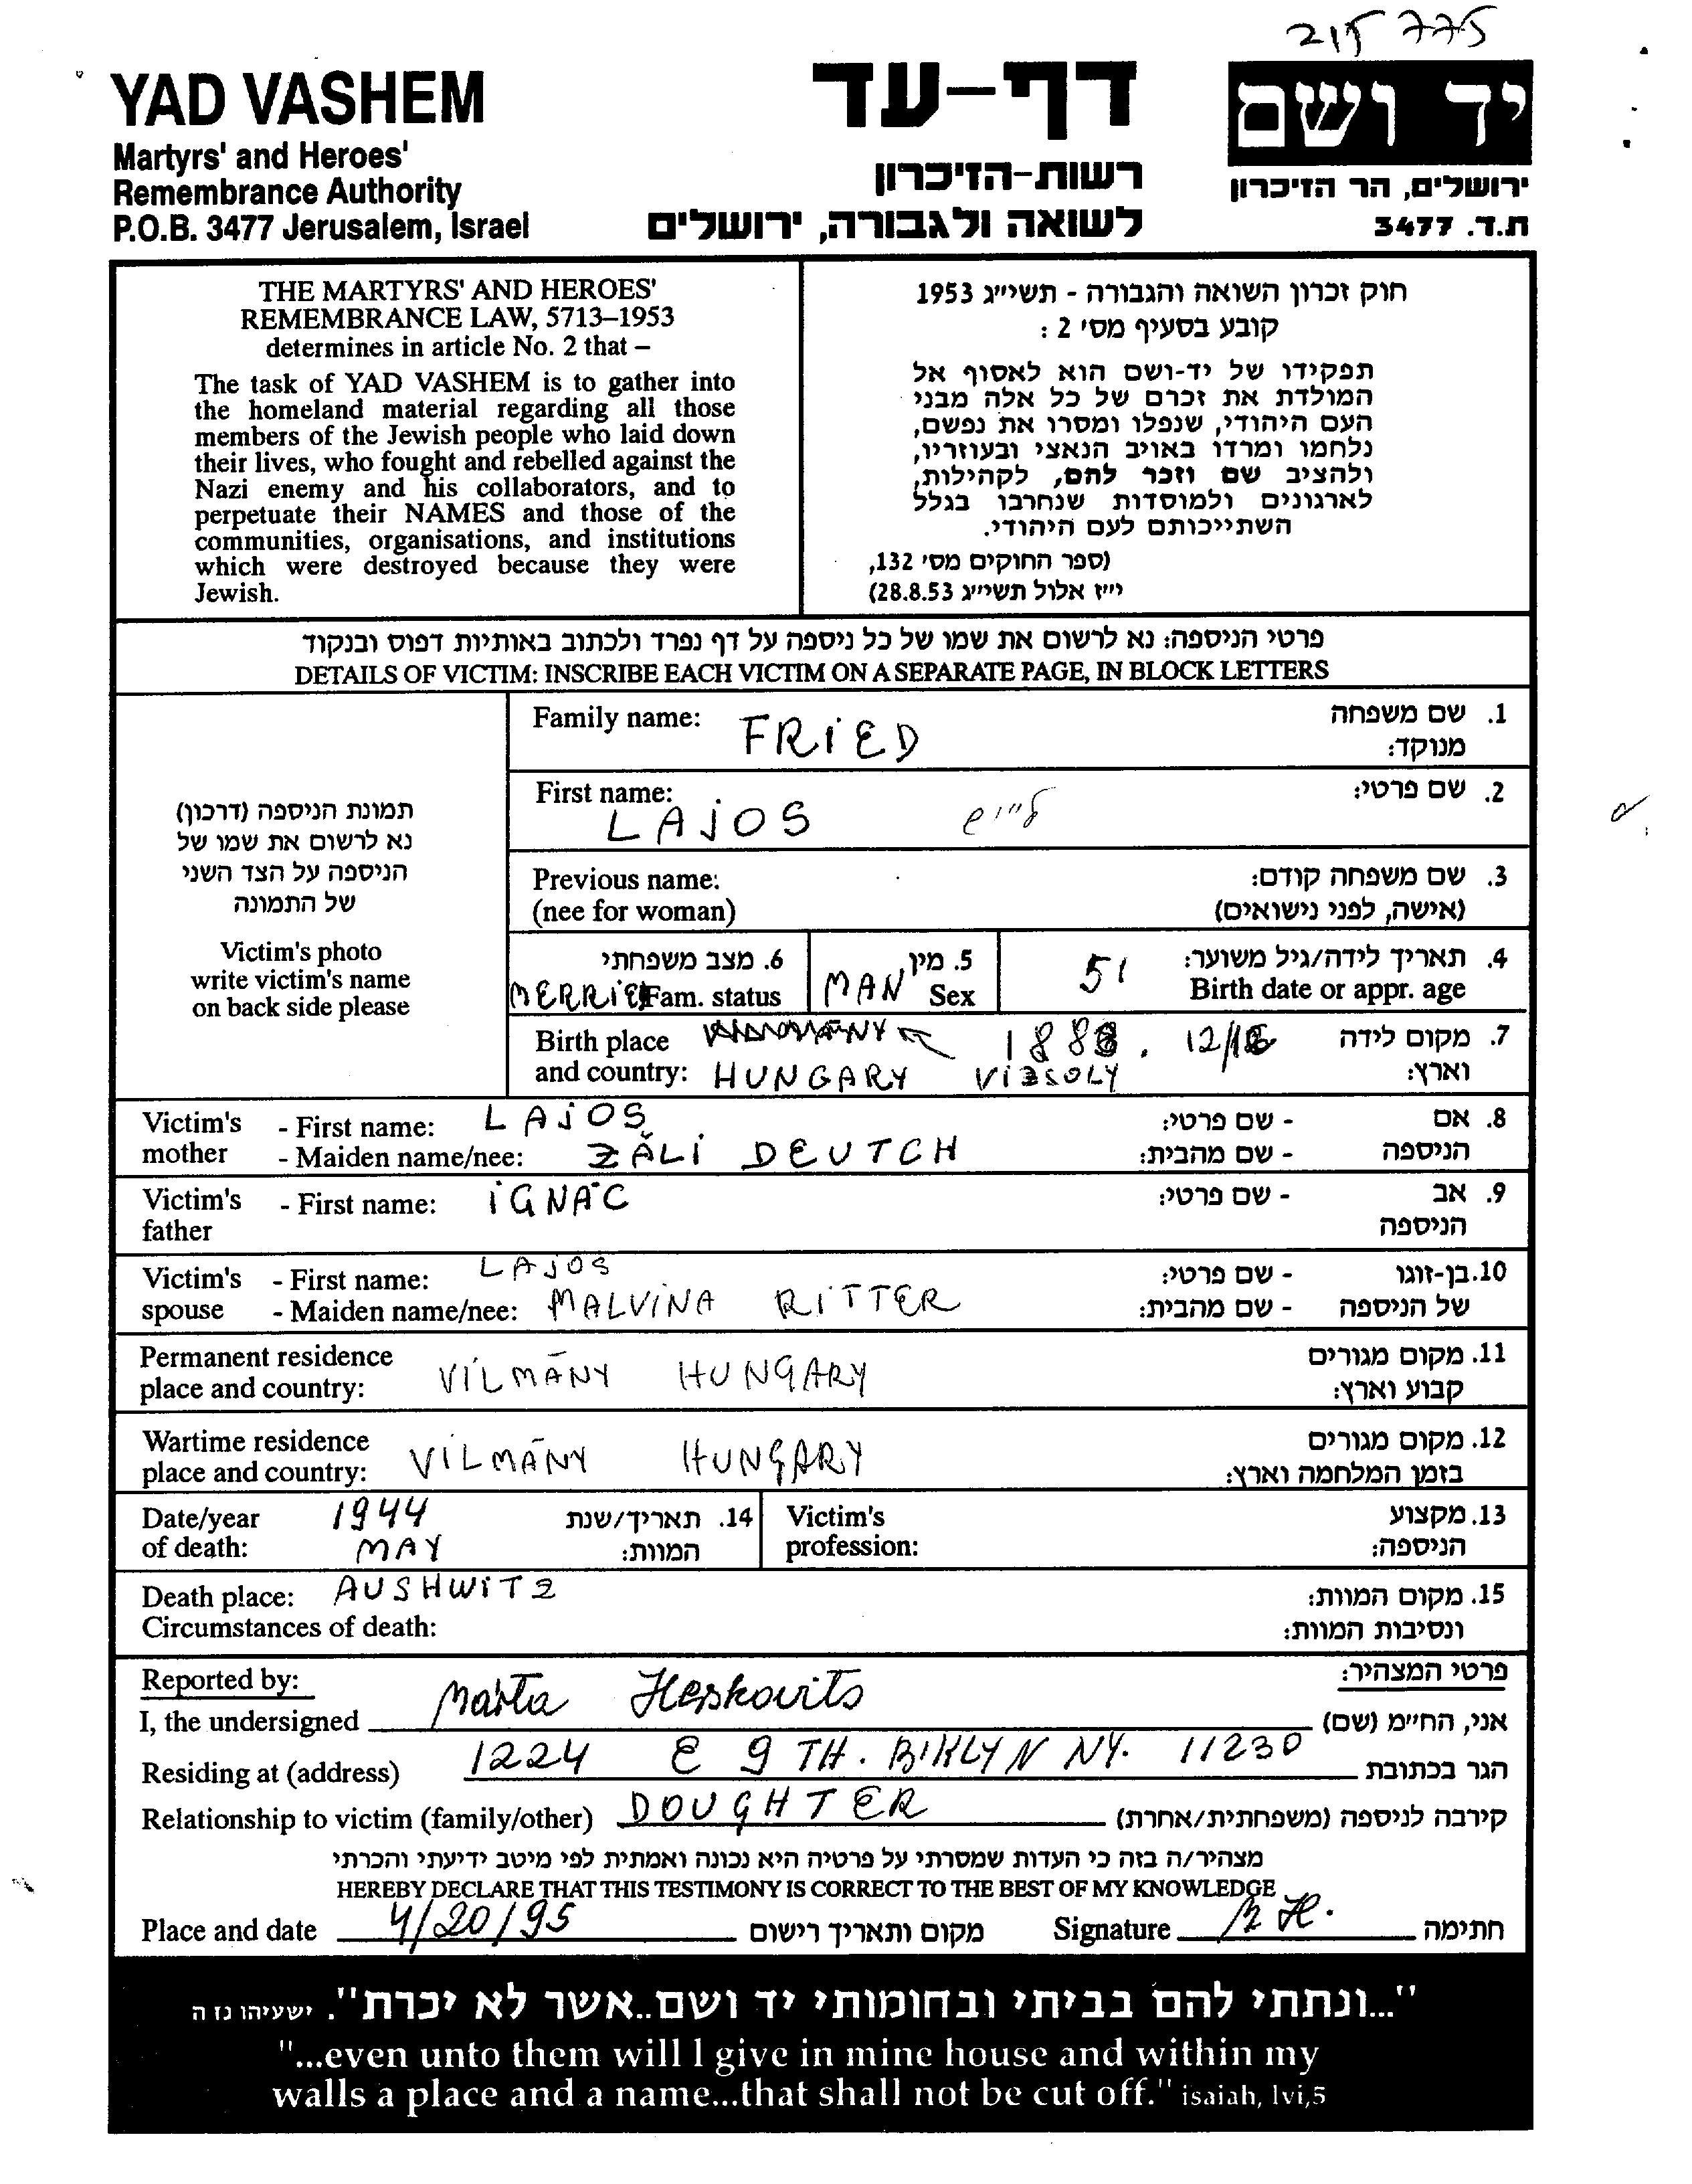 215775
YAD VASHEM
Martyrs' and Heroes'
Remembrance Authority
P.O.B. 3477 Jerusalem, Israel
דף-עד
רשות-הזיכרון
לשואה ולגבורה, ירושלים
יד ושם
ירושלים, הר הזיכרון
ת.ד. 3477
THE MARTYRS' AND HEROES'
REMEMBRANCE LAW, 5713–1953
determines in article No. 2 that –
The task of YAD VASHEM is to gather into
the homeland material regarding all those
members of the Jewish people who laid down
their lives, who fought and rebelled against the
Nazi enemy and his collaborators, and to
perpetuate their NAMES and those of the
communities, organisations, and institutions
which were destroyed because they were
Jewish.
חוק זכרון השואה והגבורה - תשי״ג 1953
קובע בסעיף מס׳ 2 :
תפקידו של יד-ושם הוא לאסוף אל
המולדת את זכרם של כל אלה מבני
העם היהודי, שנפלו ומסרו את נפשם,
נלחמו ומרדו באויב הנאצי ובעוזריו,
ולהציב שם וזכר להם, לקהילות,
לארגונים ולמוסדות שנחרבו בגלל
השתייכותם לעם היהודי.
(ספר החוקים מס׳ 132,
י״ז אלול תשי״ג 28.8.53)
פרטי הניספה: נא לרשום את שמו של כל ניספה על דף נפרד ולכתוב באותיות דפוס ובנקוד
DETAILS OF VICTIM: INSCRIBE EACH VICTIM ON A SEPARATE PAGE, IN BLOCK LETTERS
תמונת הניספה (דרכון)
נא לרשום את שמו של
הניספה על הצד השני
של התמונה
Victim's photo
write victim's name
on back side please
Family name: FRiED 1. שם משפחה
מנוקד:
First name: LAjOS לייוש 2. שם פרטי:
Previous name: 3. שם משפחה קודם:
(nee for woman) (אישה, לפני נישואים)
6. מצב משפחתי 5. מין 51 4. תאריך לידה/גיל משוער:
MERRiE Fam. status MAN Sex Birth date or appr. age
Birth place 1888. 12/18 7. מקום לידה
and country: HUNGARY ViZSOLY וארץ:
Victim's - First name: LAjOS - שם פרטי: 8. אם
mother - Maiden name/nee: ZÁLi DEUTCH - שם מהבית: הניספה
Victim's - First name: iGNÁC - שם פרטי: 9. אב
father הניספה
Victim's - First name: LAjOS - שם פרטי: 10. בן-זוגו
spouse - Maiden name/nee: MALViNA RiTTER - שם מהבית: של הניספה
Permanent residence 11. מקום מגורים
place and country: ViLMÁNY HUNGARY קבוע וארץ:
Wartime residence 12. מקום מגורים
place and country: ViLMÁNY HUNGARY בזמן המלחמה וארץ:
Date/year 1944 14. תאריך/שנת Victim's 13. מקצוע
of death: MAY המוות: profession: הניספה:
Death place: AUSHWiTZ 15. מקום המוות:
Circumstances of death: ונסיבות המוות:
Reported by: פרטי המצהיר:
I, the undersigned Marta Heskovits אני, החי״מ (שם)
Residing at (address) 1224 E 9 TH. BKLYN NY. 11230 הגר בכתובת
Relationship to victim (family/other) DOUGHTER קירבה לניספה (משפחתית/אחרת)
מצהיר/ה בזה כי העדות שמסרתי על פרטיה היא נכונה ואמתית לפי מיטב ידיעתי והכרתי
HEREBY DECLARE THAT THIS TESTIMONY IS CORRECT TO THE BEST OF MY KNOWLEDGE
Place and date 4/20/95 מקום ותאריך רישום Signature M H. חתימה
"...ונתתי להם בביתי ובחומותי יד ושם..אשר לא יכרת". ישעיהו נו ה
"...even unto them will I give in mine house and within my
walls a place and a name...that shall not be cut off." isaiah, lvi,5